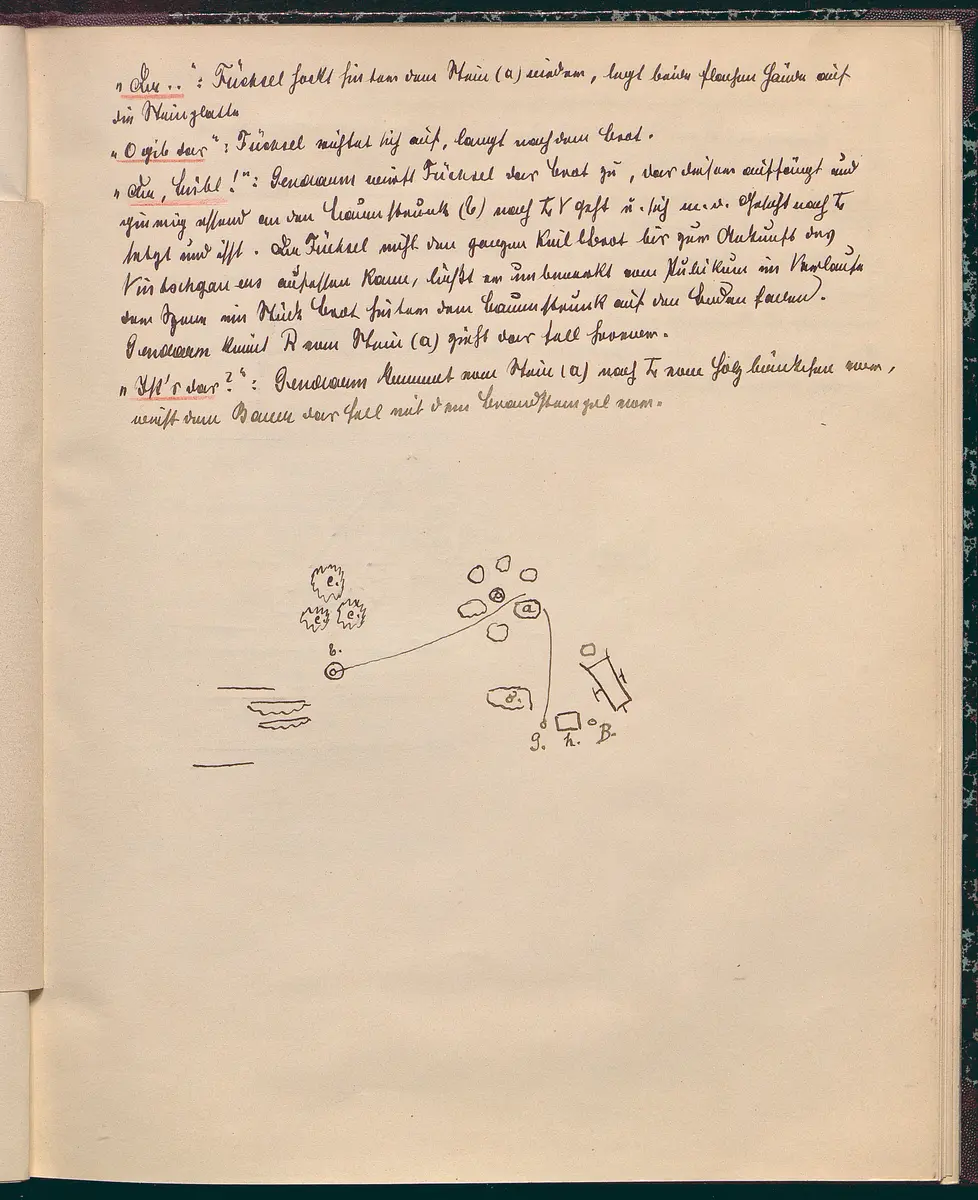 „Du ..“: Füchsel hockt hinter dem Stein (a) nieder, legt beide flachen Hände auf
die Steinplatte
„O gib das“: Füchsel richtet sich auf, langt nach dem Brot.
„Du, !“: Gendarm wirft Füchsel das Brot zu, das dieser auffängt und
gierig essend an den Baumstrunk (b) nach L V geht u. sich m. d. Gesicht nach L
setzt und ißt. Da Füchsel nicht den ganzen Keil Brot bis zur Ankunft des
Vintschgauers aufessen kann, läßt er unbemerkt vom Publikum im Verlaufe
der Szene ein Stück Brot hinter dem Baumstrunk auf den Boden fallen.
Gendarm kniet R vom Stein (a) zieht das Fell hervor.
„Ist's das?“: Gendarm kommt vom Stein (a) nach L vom Holzbänkchen vor,
weist dem Bauer das Fell mit dem Brandstempel vor.
e.
e. e.
b.
a
d.
g. h. B.